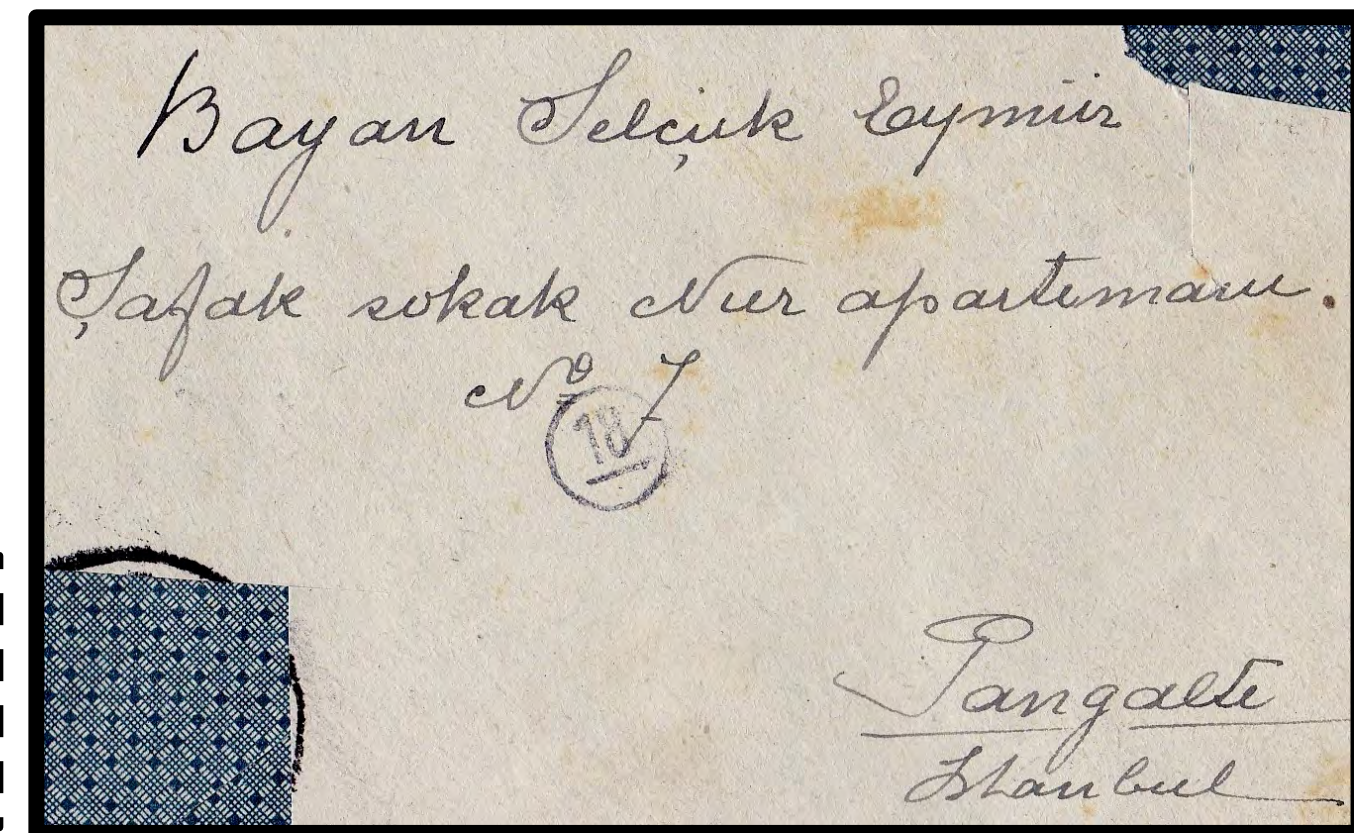 Bayan Selçuk Eymür
Şafak sokak Nur apartımanı.
Nº 7
18
Pangaltı
Istanbul